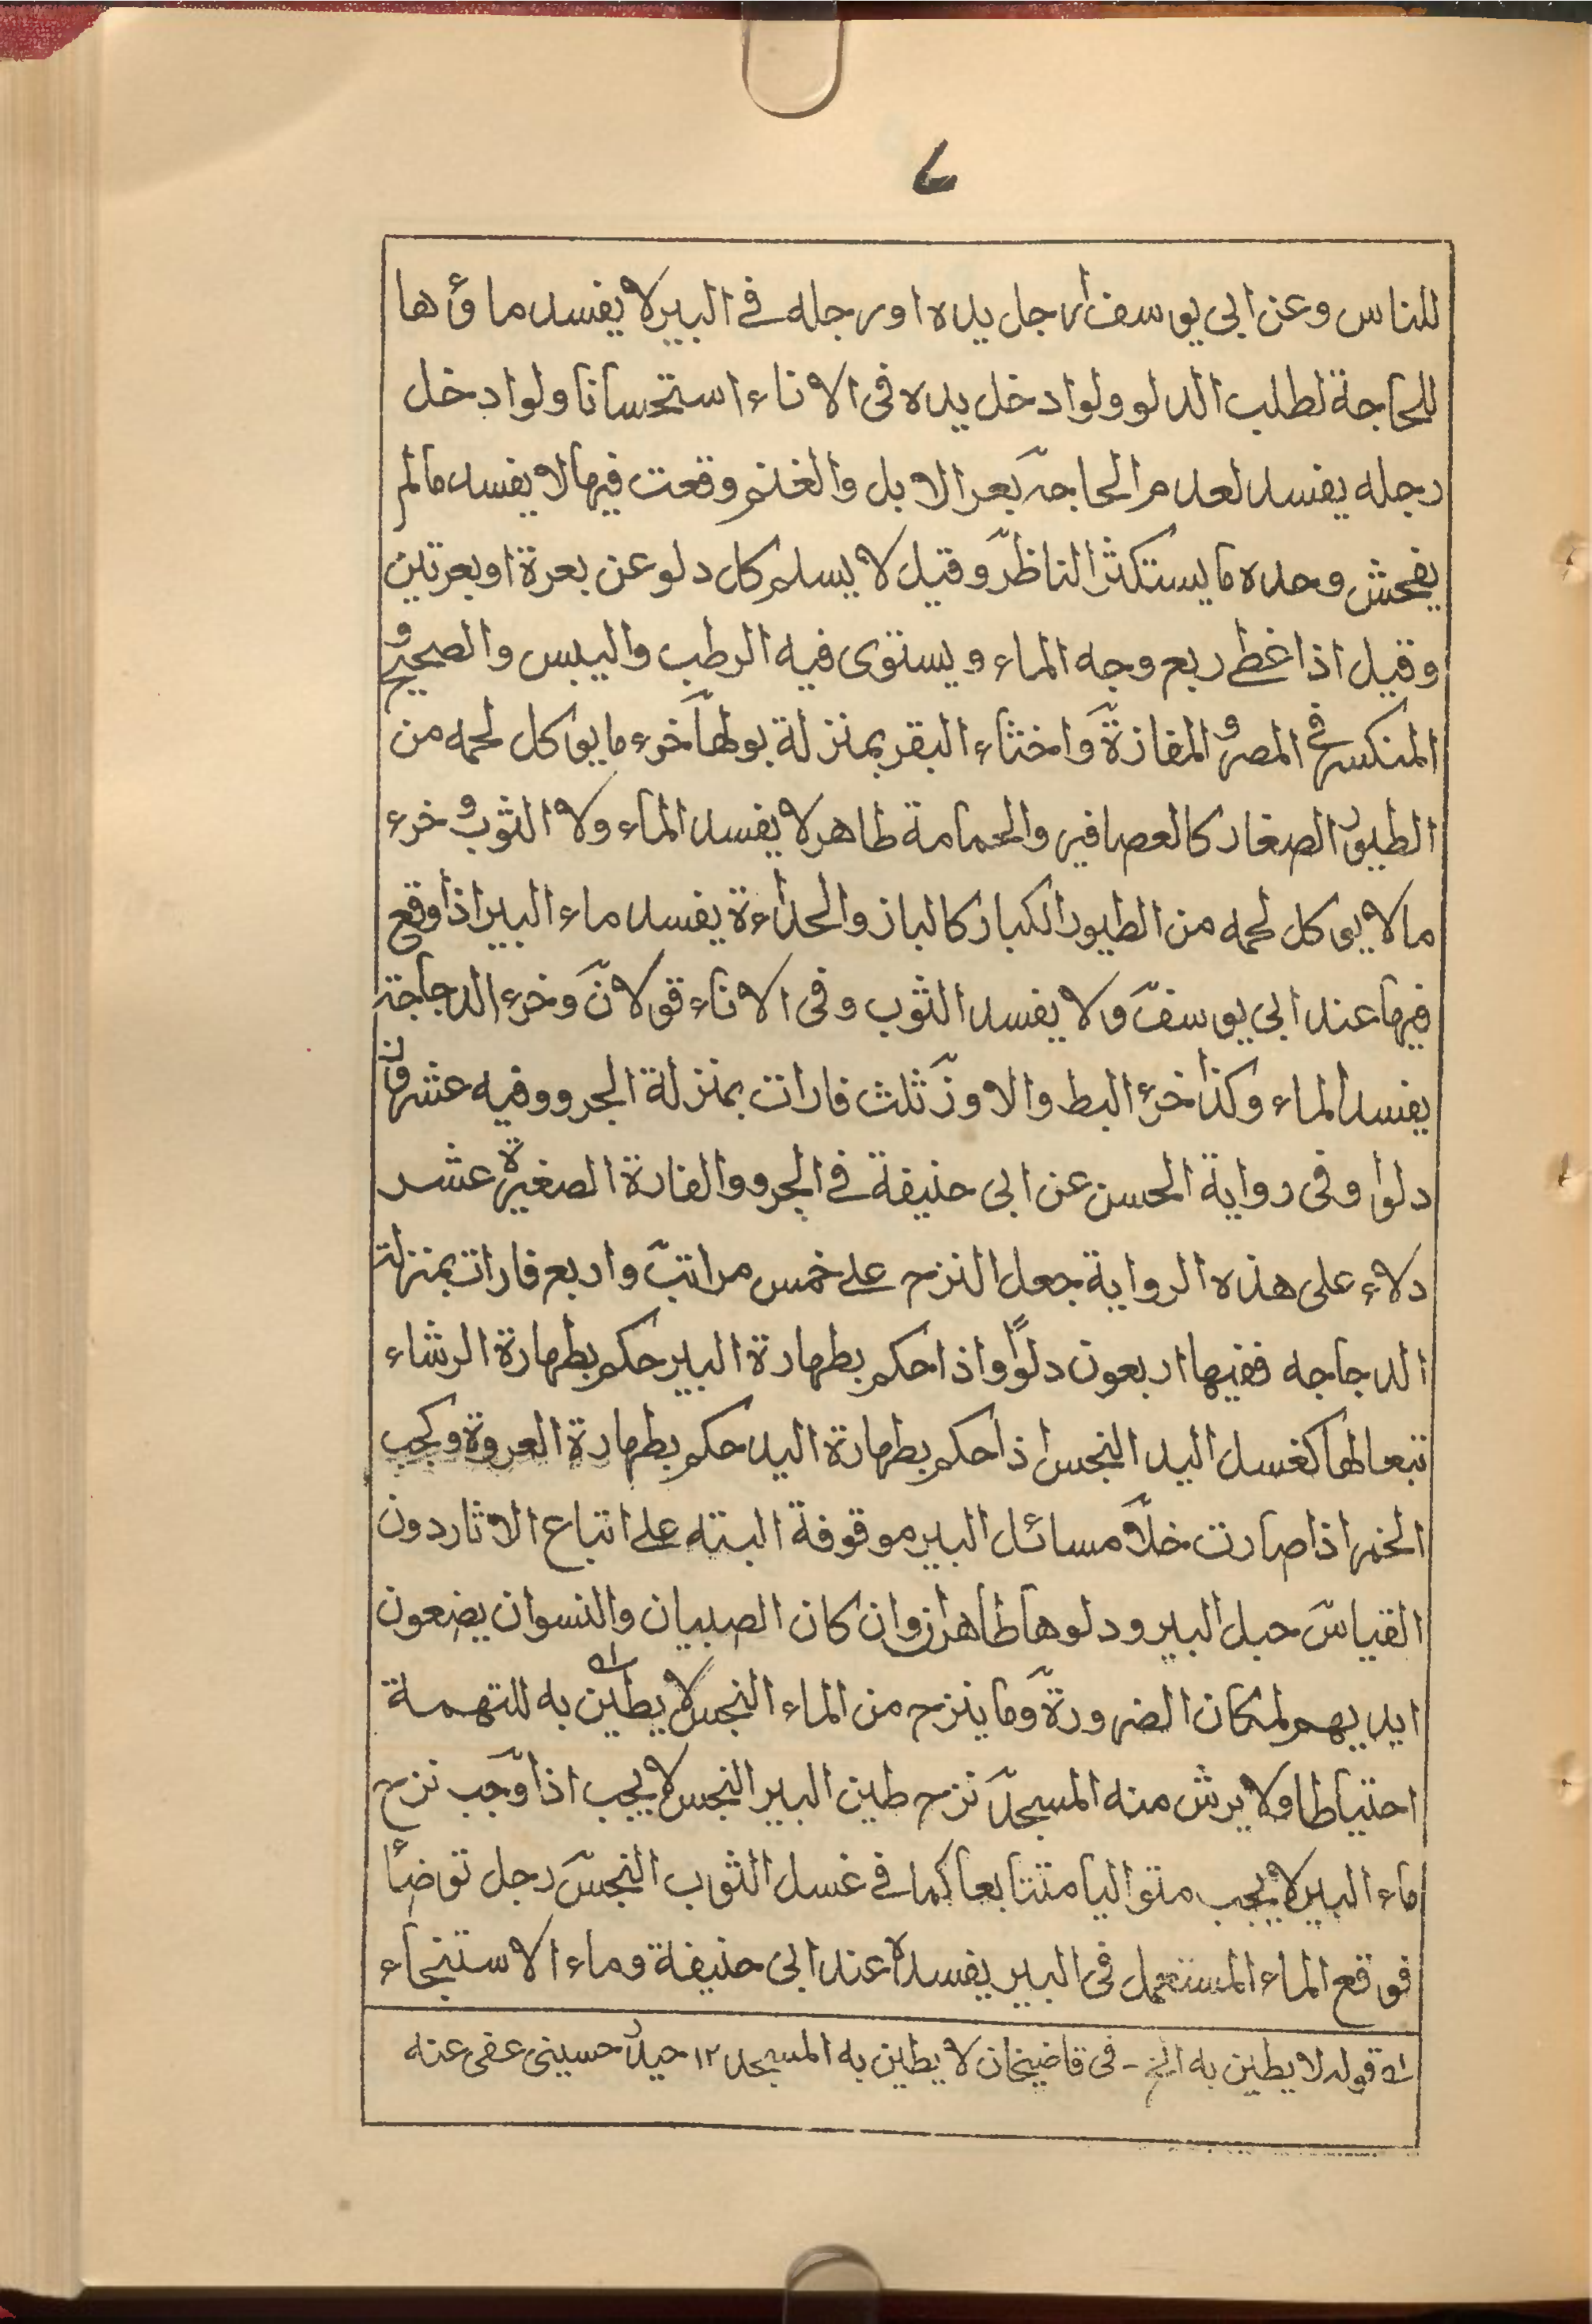 ۷
للناس وعن ابى يوسف ارجل يده اورجله فے البير لا يفسد ماؤها
للحاجة لطلب الدلو ولو ادخل يده فى الاناء استحسانا ولو ادخل
رجله يفسد لعدم الحاجة بعر الابل والغنم وقعت فيها لا يفسد مالم
يفحش وحده ما يستكثر الناظر وقيل لا يسلم كل دلو عن بعرة او بعرتين
وقيل اذا غطے ربع وجه الماء ويستوى فيه الرطب واليبس والصحيح و
المنكسر فى المصر و المفازة واخثاء البقر بمنزلة بولها خرء مايوكل لحمه من
الطيور الصغار كالعصافير والحمامة طاهر لا يفسد الماء ولا الثوب و خرء
مالا يوكل لحمه من الطيور الكبار كالباز والحداءة يفسد ماء البير اذا وقع
فيها عند ابى يوسف ولا يفسد الثوب وفى الاناء قولان وخرء الدجاجة
يفسد الماء وكذا خرء البط والاوز ثلث فارات بمنزلة الجرو وفيه عشرون
دلوا وفى رواية الحسن عن ابى حنيفة فے الجرو والفارة الصغيرة عشر
دلاء على هذه الرواية جعل النزح علے خمس مراتب واربع فارات بمنزلة
الدجاجه ففيها اربعون دلوًا واذا حكم بطهارة البير حكم بطهارة الرشاء
تبعا لها كغسل اليد النجس اذا حكم بطهارة اليد حكم بطهارة العروة وكجب
الخمر اذا صارت خلا مسائل البير موقوفة البته علے اتباع الاثار دون
القياس حبل البير ودلوها طاهران وان كان الصبيان والنسوان يضعون
ايديهم لمكان الضرورة وما ينزح من الماء النجس لا يطين به للتهمة
احتياطا ولا يرش منه المسجد نزح طين البير النجس لا يجب اذا وجب نزح
ماء البير لا يجب متواليا متتابعا كما فے غسل الثوب النجس رجل توضأ
فوقع الماء المستعمل فى البير يفسده عند ابى حنيفة وماء الاستنجاء
لہ قوله لا يطين به الخ - فى قاضيخان لا يطين به المسجد ۱۲ حيدر حسينى عفى عنه